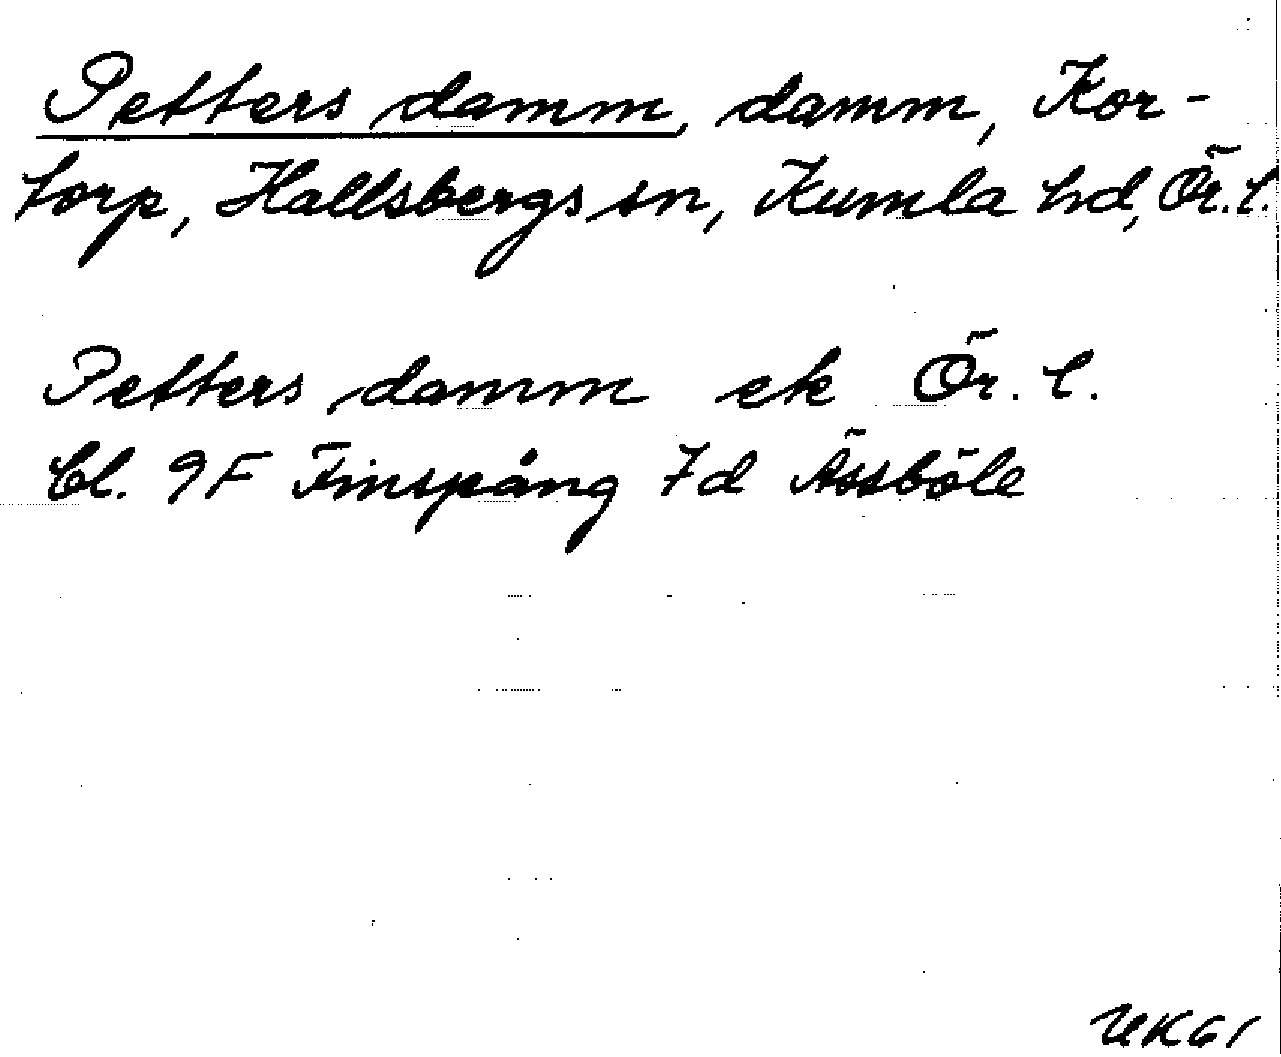 Petters damm, damm, Kor-
torp, Hallsbergs sn, Kumla hd, Ör. l.
Petters damm ek Ör. l.
Bl. 9F Finspång 7d Åssböle
UK61